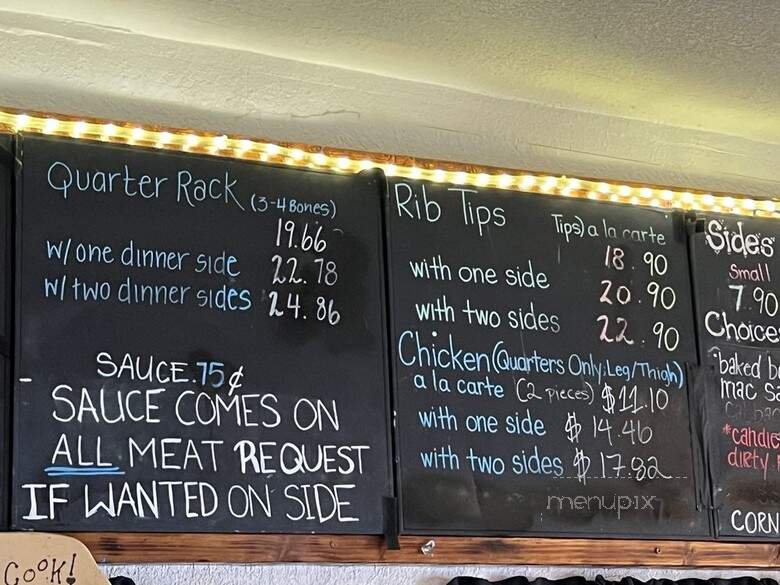 Quarter Rack (3-4 Bones)
19.66
w/one dinner side 22.78
w/two dinner sides 24.86
SAUCE .75¢
- SAUCE COMES ON
ALL MEAT REQUEST
IF WANTED ON SIDE
Rib Tips Tips) a la carte
18.90
with one side 20.90
with two sides 22.90
Chicken (Quarters Only; Leg/Thigh)
a la carte (2 pieces) $11.10
with one side $14.46
with two sides $17.82
menupix
Sides
Small
7.90
Choice
*baked b
mac
*candie
dirty
CORN
Cook!